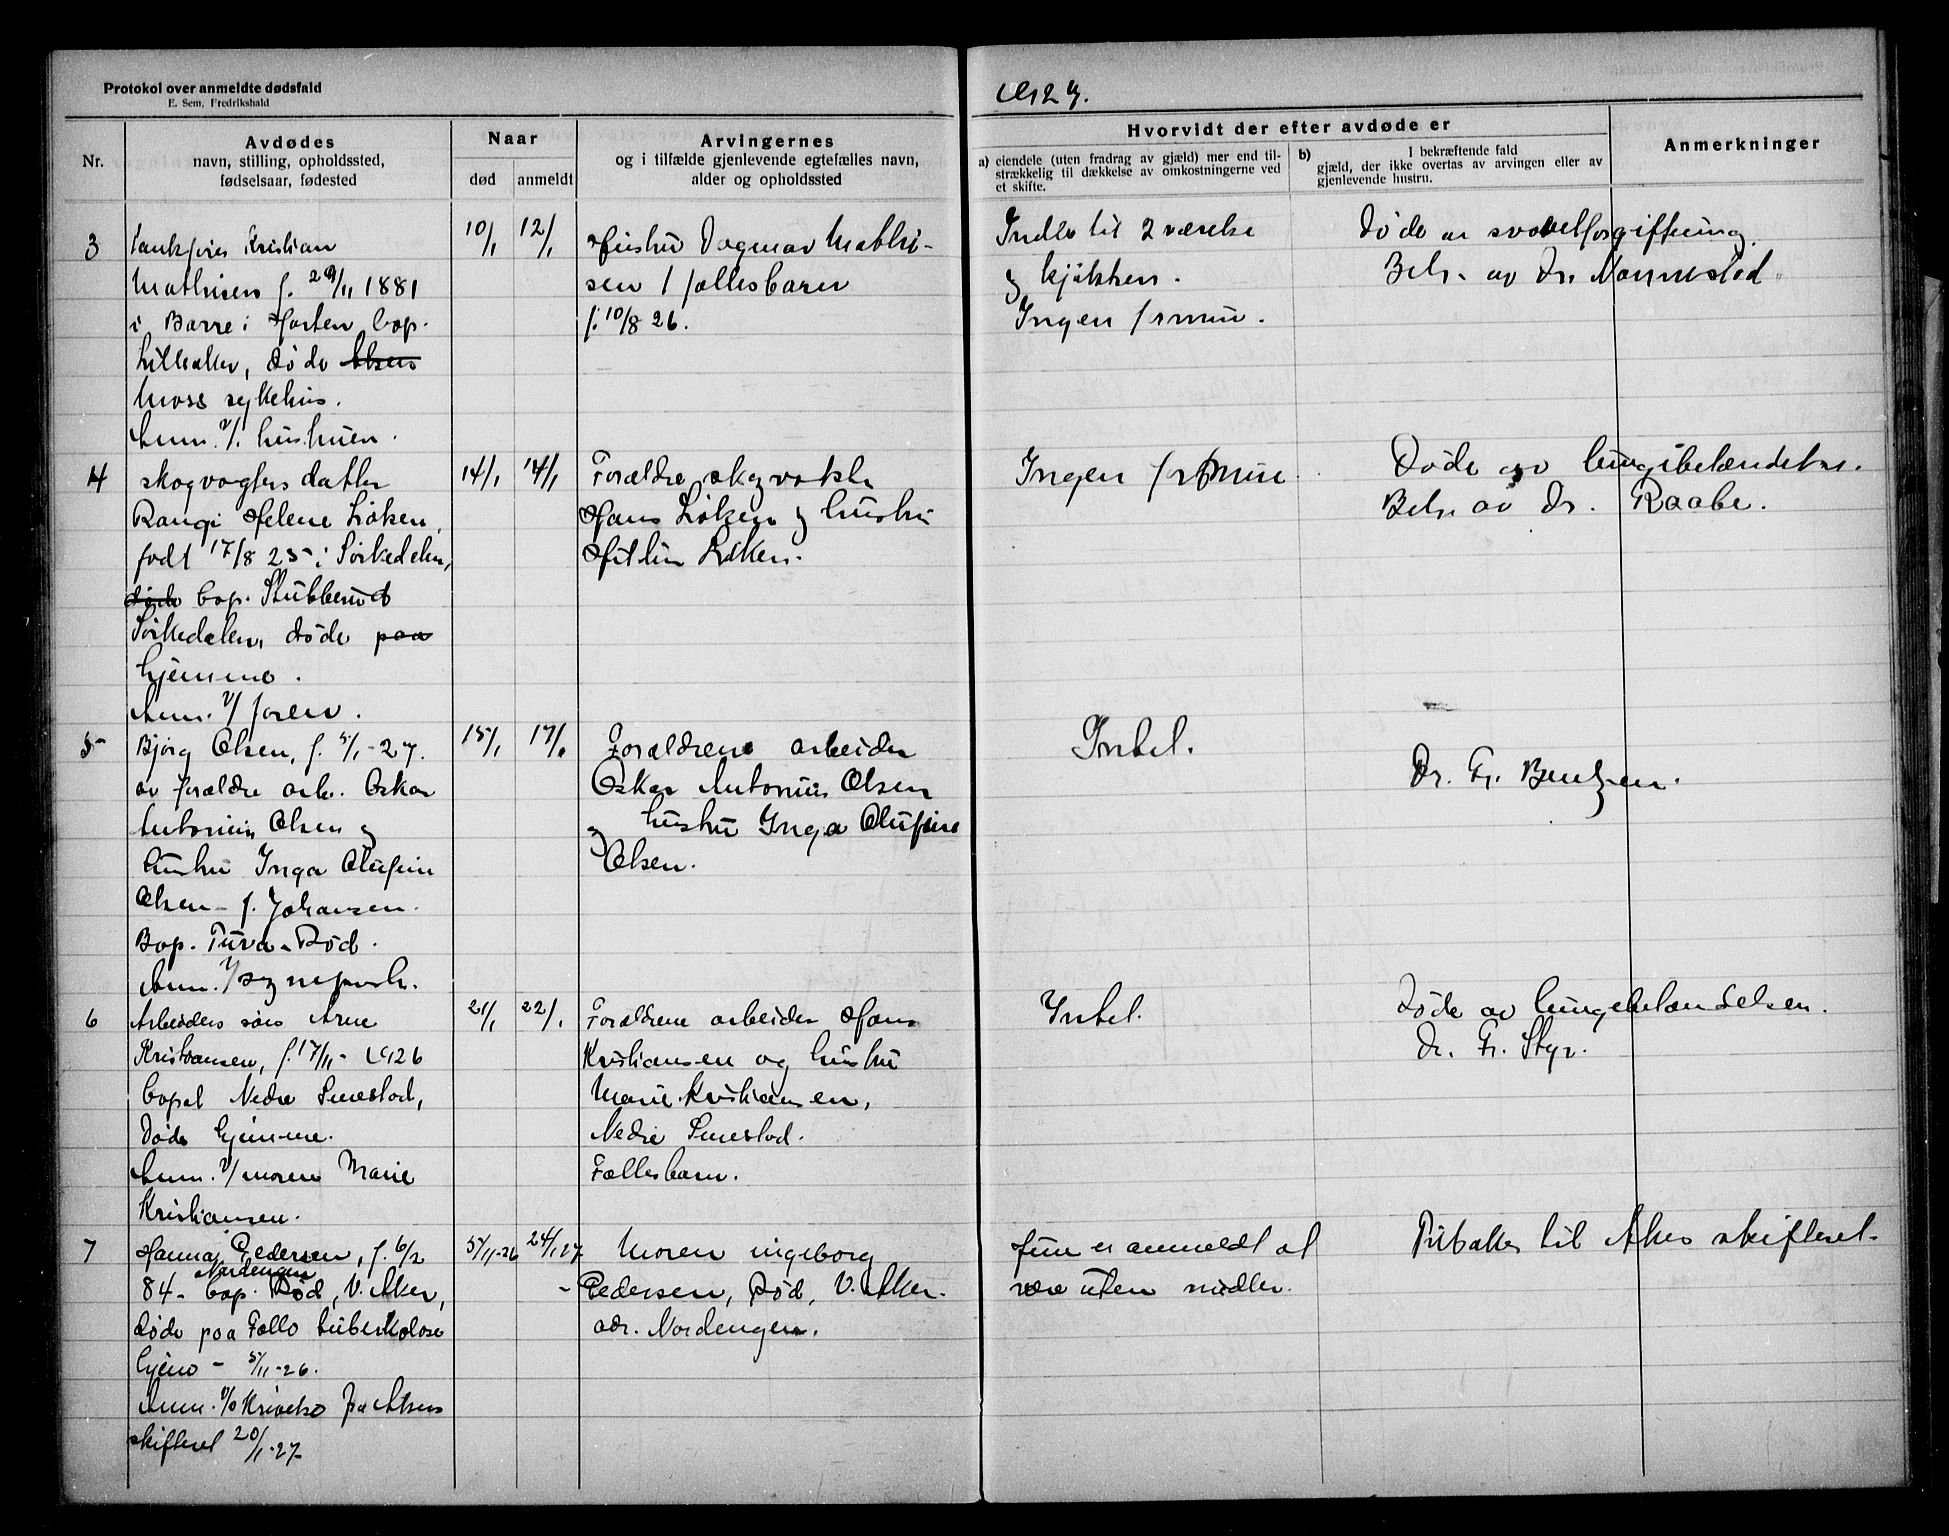 Protokol over anmeldte dødsfald
E. Sem, Fredrikshald
1927.
Nr.
Avdødes
navn, stilling, opholdssted,
fødselsaar, fødested
Naar
død
anmeldt
Arvingernes
og i tilfælde gjenlevende egtefælles navn,
alder og opholdssted
Hvorvidt der efter avdøde er
a) eiendele (uten fradrag av gjæld) mer end til-
strækkelig til dækkelse av omkostningerne ved
et skifte.
b) I bekræftende fald
gjæld, der ikke overtas av arvingen eller av
gjenlevende hustru.
Anmerkninger
3
Kristian
Mathisen f. 29/11 1881
i Borre i Horten bop.
Lilleaker, døde Akers
Moss sykehus.
Anm. v/ hustruen.
10/1
12/1
Hustru Dagmar Mathi-
sen 1 fællesbarn
f. 10/8 26.
Indbo til 2 værelse
og kjøkken.
Ingen formue.
Døde av svovelforgiftning.
Beh. av Dr. Nannestad
4
skogvogters datter
Rangi Helene Løken,
født 17/8 25 i Sørkedalen,
døde bop. Stubberud
Sørkedalen, døde paa
hjemme.
Anm. v/ faren.
14/1
14/1
Forældre skogvokter
Hans Løken og hustru
Løken.
Ingen formue
Døde av lungebetændelse.
Beh av Dr. Raabe.
5
Bjørg Olsen, f. 5/1-27.
av forældre arb. Oskar
Antonius Olsen og
hustru Inga Olufine
Olsen f. Johansen.
Bop. Rød.
Anm. v/
15/1
17/1
Forældrene arbeider
Oskar Antonius Olsen
og hustru Inga Olufine
Olsen.
Intet.
Dr. Fr. Bentzen.
6
Arbeiders søn Arne
Kristiansen, f. 17/11-1926
bopæl Nedre Smestad,
Døde hjemme.
Anm. v/ moren Marie
Kristiansen.
21/1
22/1
Forældrene arbeider Hans
Kristiansen og hustru
Marie Kristiansen,
Nedre Smestad.
Fællesbarn.
Intet.
Døde av lungebetændelsen.
Dr. Fr. Styr.
7
Hanna Pedersen, f. 6/2
Nordengen
84 - bop. Rød, V. Aker,
døde paa Follo tuberkolose
hjem - 5/11-26.
Anm. fra Akers
skifteret 20/1-27
5/11-26
24/1 27
Moren Ingeborg
Pedersen, Rød, V. Aker.
adr. Nordengen.
Hun er anmeldt at
være uten midler.
Tilbake til Akers skifteret.